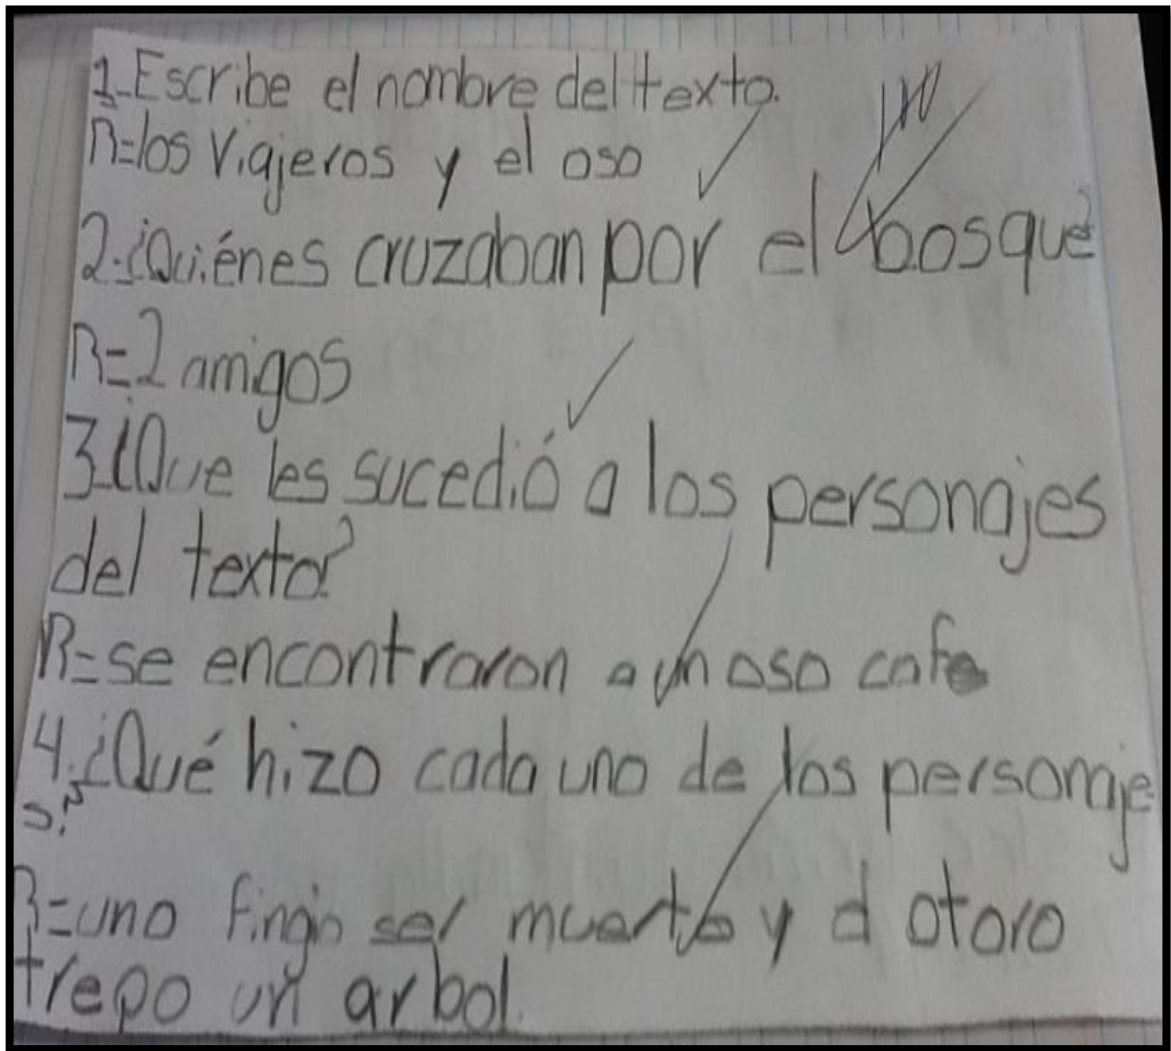 1-Escribe el nombre del texto.
R=los Viajeros y el oso
2-¿Quiénes cruzaban por el bosque?
R=2 amigos
3-¿Que les sucedió a los personajes
del texto?
R=se encontraron a un oso cafe
4-¿Qué hizo cada uno de los personaje
s?
R=uno fingio ser muerto y el otoro
trepo un arbol.